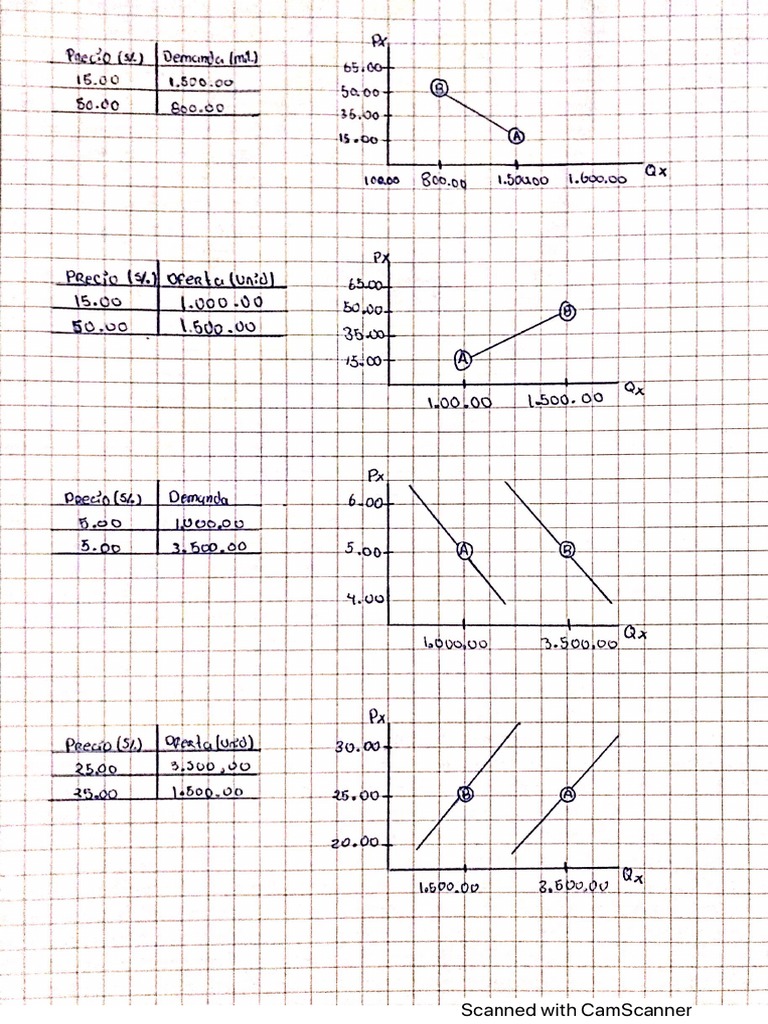 Precio (S/.) Demanda (mil.)
15.00 1.500.00
50.00 800.00
Px
65.00
50.00 B
35.00
15.00 A
100.00 800.00 1.500.00 1.600.00 Qx
Precio (S/.) Oferta (Unid)
15.00 1.000.00
50.00 1.500.00
Px
65.00
50.00 B
35.00
15.00 A
1.00.00 1.500.00 Qx
Precio (S/.) Demanda
5.00 1,000.00
5.00 3.500.00
Px
6.00
5.00 A B
4.00
1,000,00 3.500,00 Qx
Precio (S/.) Oferta (Unid)
25.00 3,500,00
25.00 1.500.00
Px
30.00
25.00 B A
20.00
1.500.00 3.500,00 Qx
Scanned with CamScanner